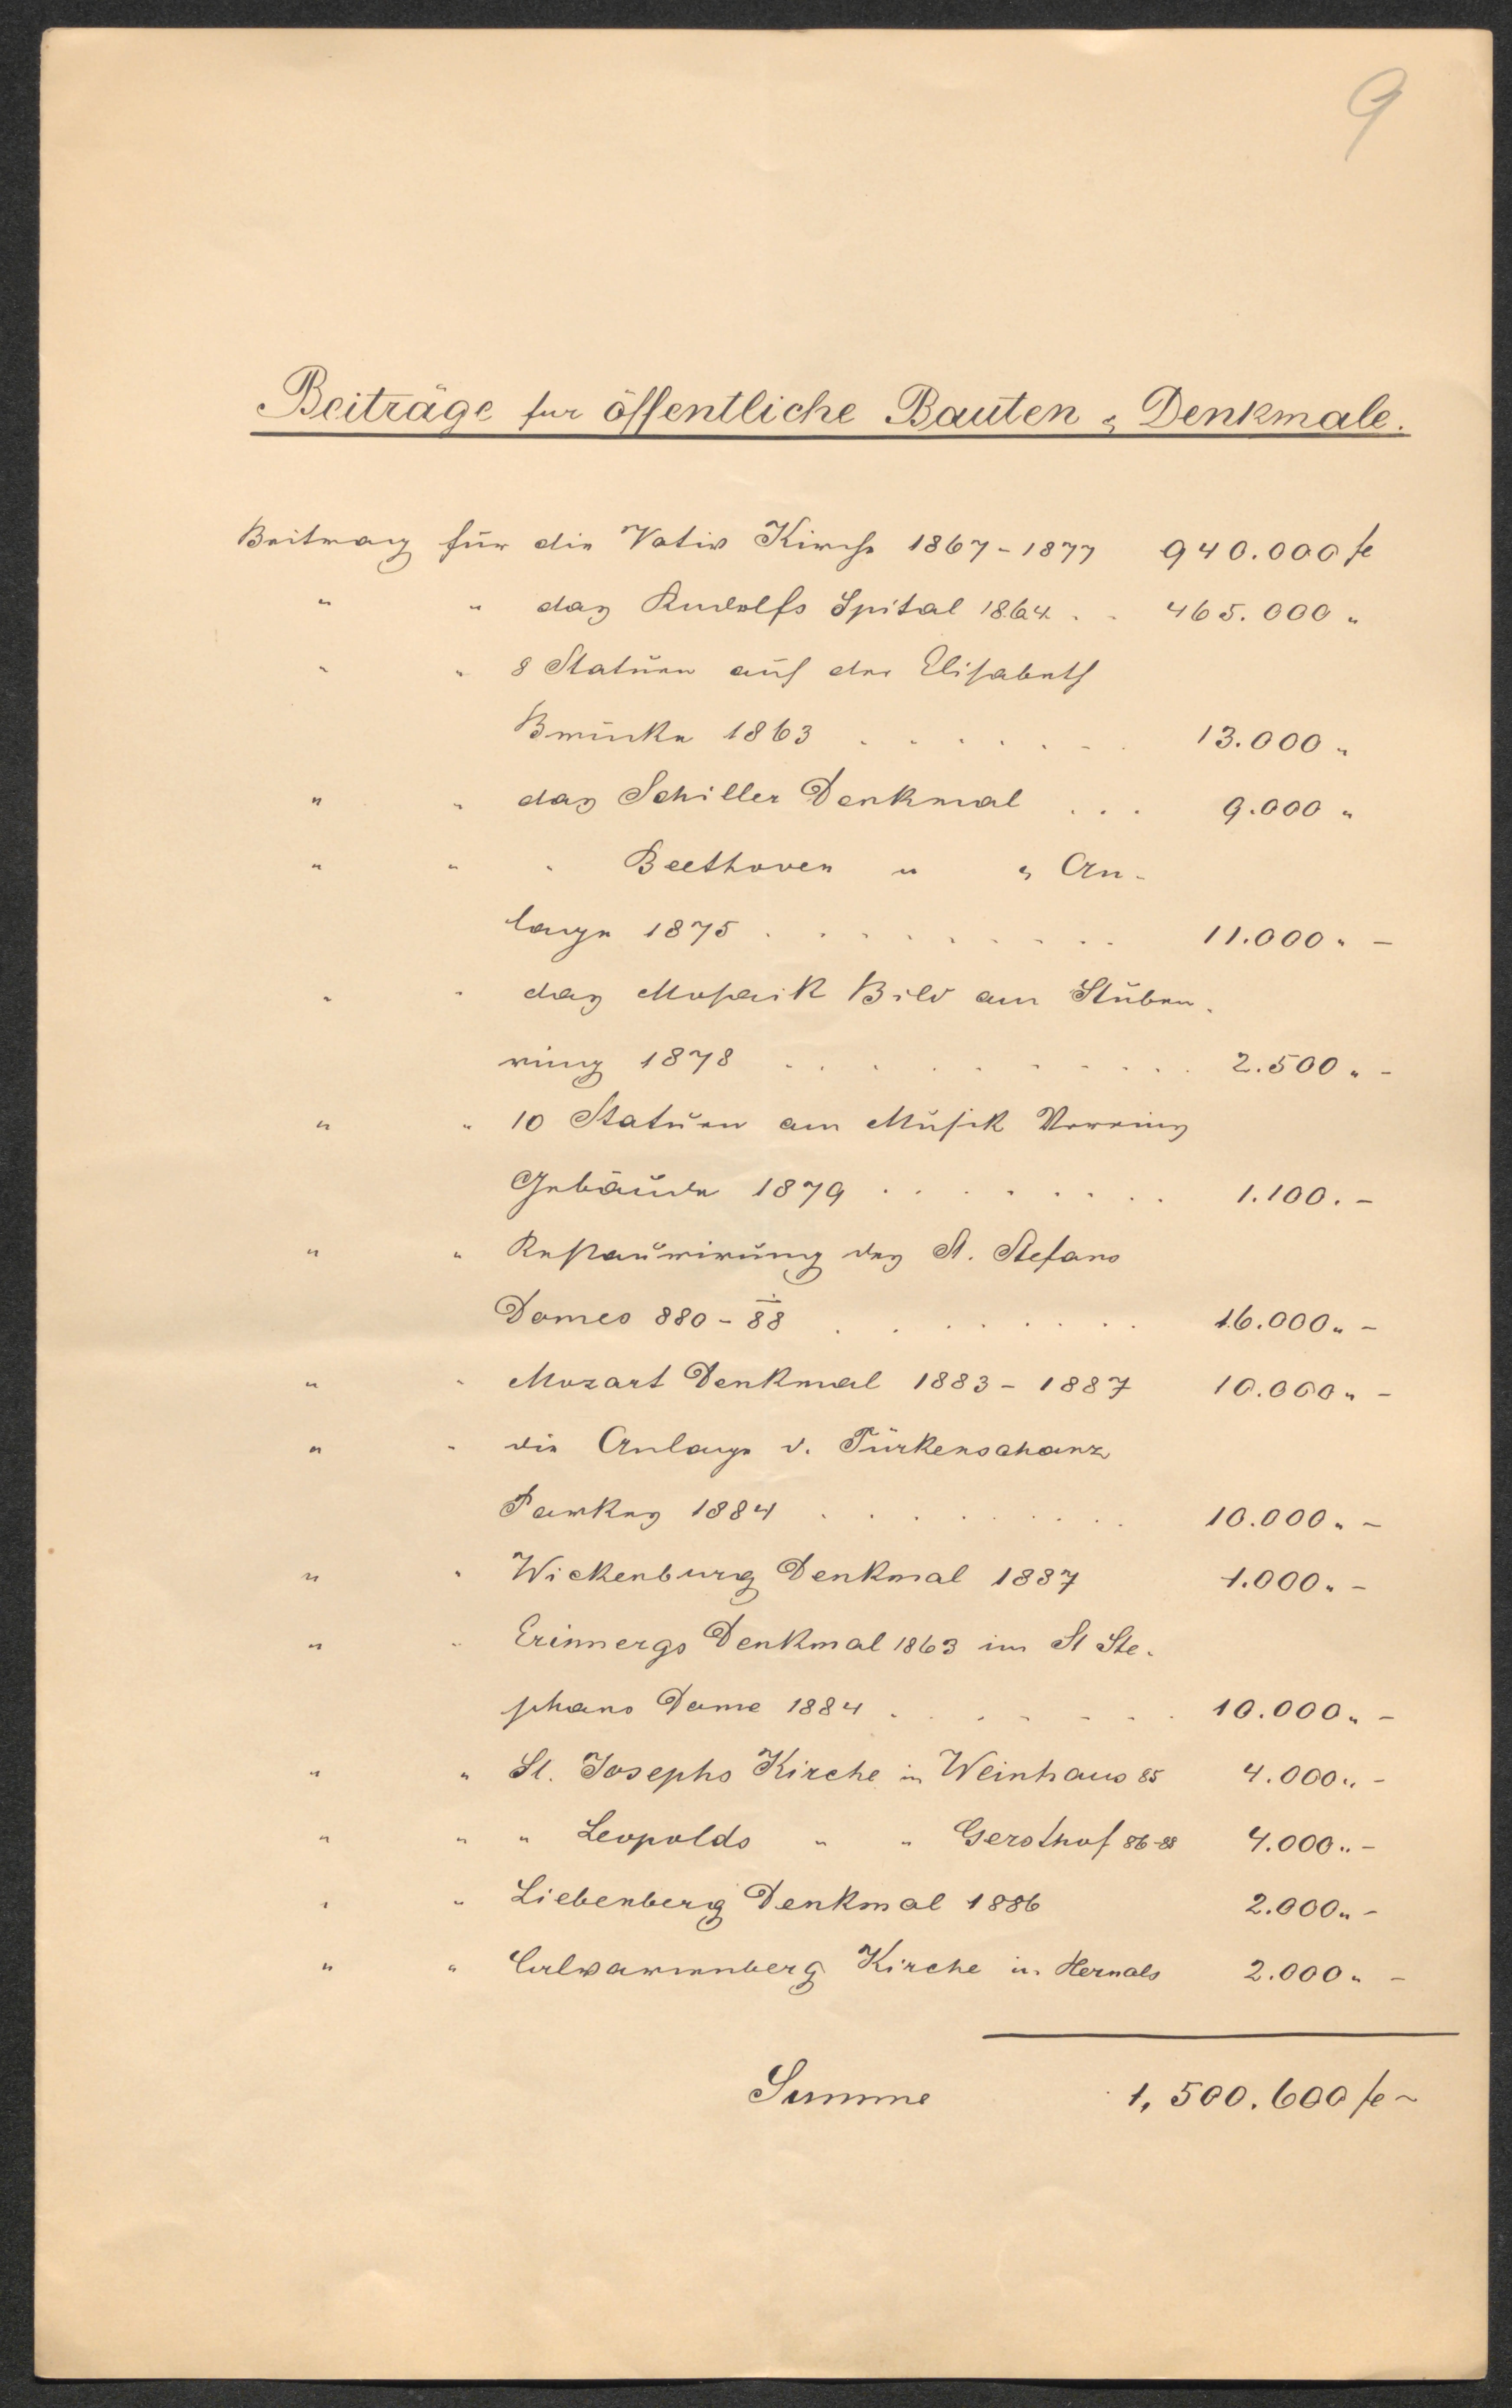 9
Beiträge für öffentliche Bauten & Denkmale.
Beitrag für die Votiv Kirche 1867-1877 940.000 fl
" " das Rudolfs Spital 1864 . . 465.000 "
" " 8 Statuen auf der Elisabeth
Brücke 1863 . . . . . . . 13.000 "
" " das Schiller Denkmal . . . 9.000 "
" " " Beethoven " & An-
lage 1875 . . . . . . . . . 11.000 " -
" " das Mosaik Bild am Stuben-
ring 1878 . . . . . . . . . 2.500 " -
" " 10 Statuen am Musik Vereins
Gebäude 1879 . . . . . . . . 1.100. -
" " Restaurirung des St. Stefans
Domes 880 - 88 . . . . . . . . 16.000 " -
" " Mozart Denkmal 1883 - 1887 10.000 " -
" " die Anlage d. Türkenschanz
Parkes 1884 . . . . . . . . . 10.000 " -
" " Wickenburg Denkmal 1887 1.000 " -
" " Erinnergs Denkmal 1863 im St Ste-
phans Dome 1884 . . . . . . . 10.000 " -
" " St. Josephs Kirche in Weinhaus 85 4.000 " -
" " " Leopolds " " Gersthof 86-88 4.000 " -
" " Liebenberg Denkmal 1886 2.000 " -
" " Calvarienberg Kirche in Hernals 2.000 " -
Summe 1,500.600 fl -